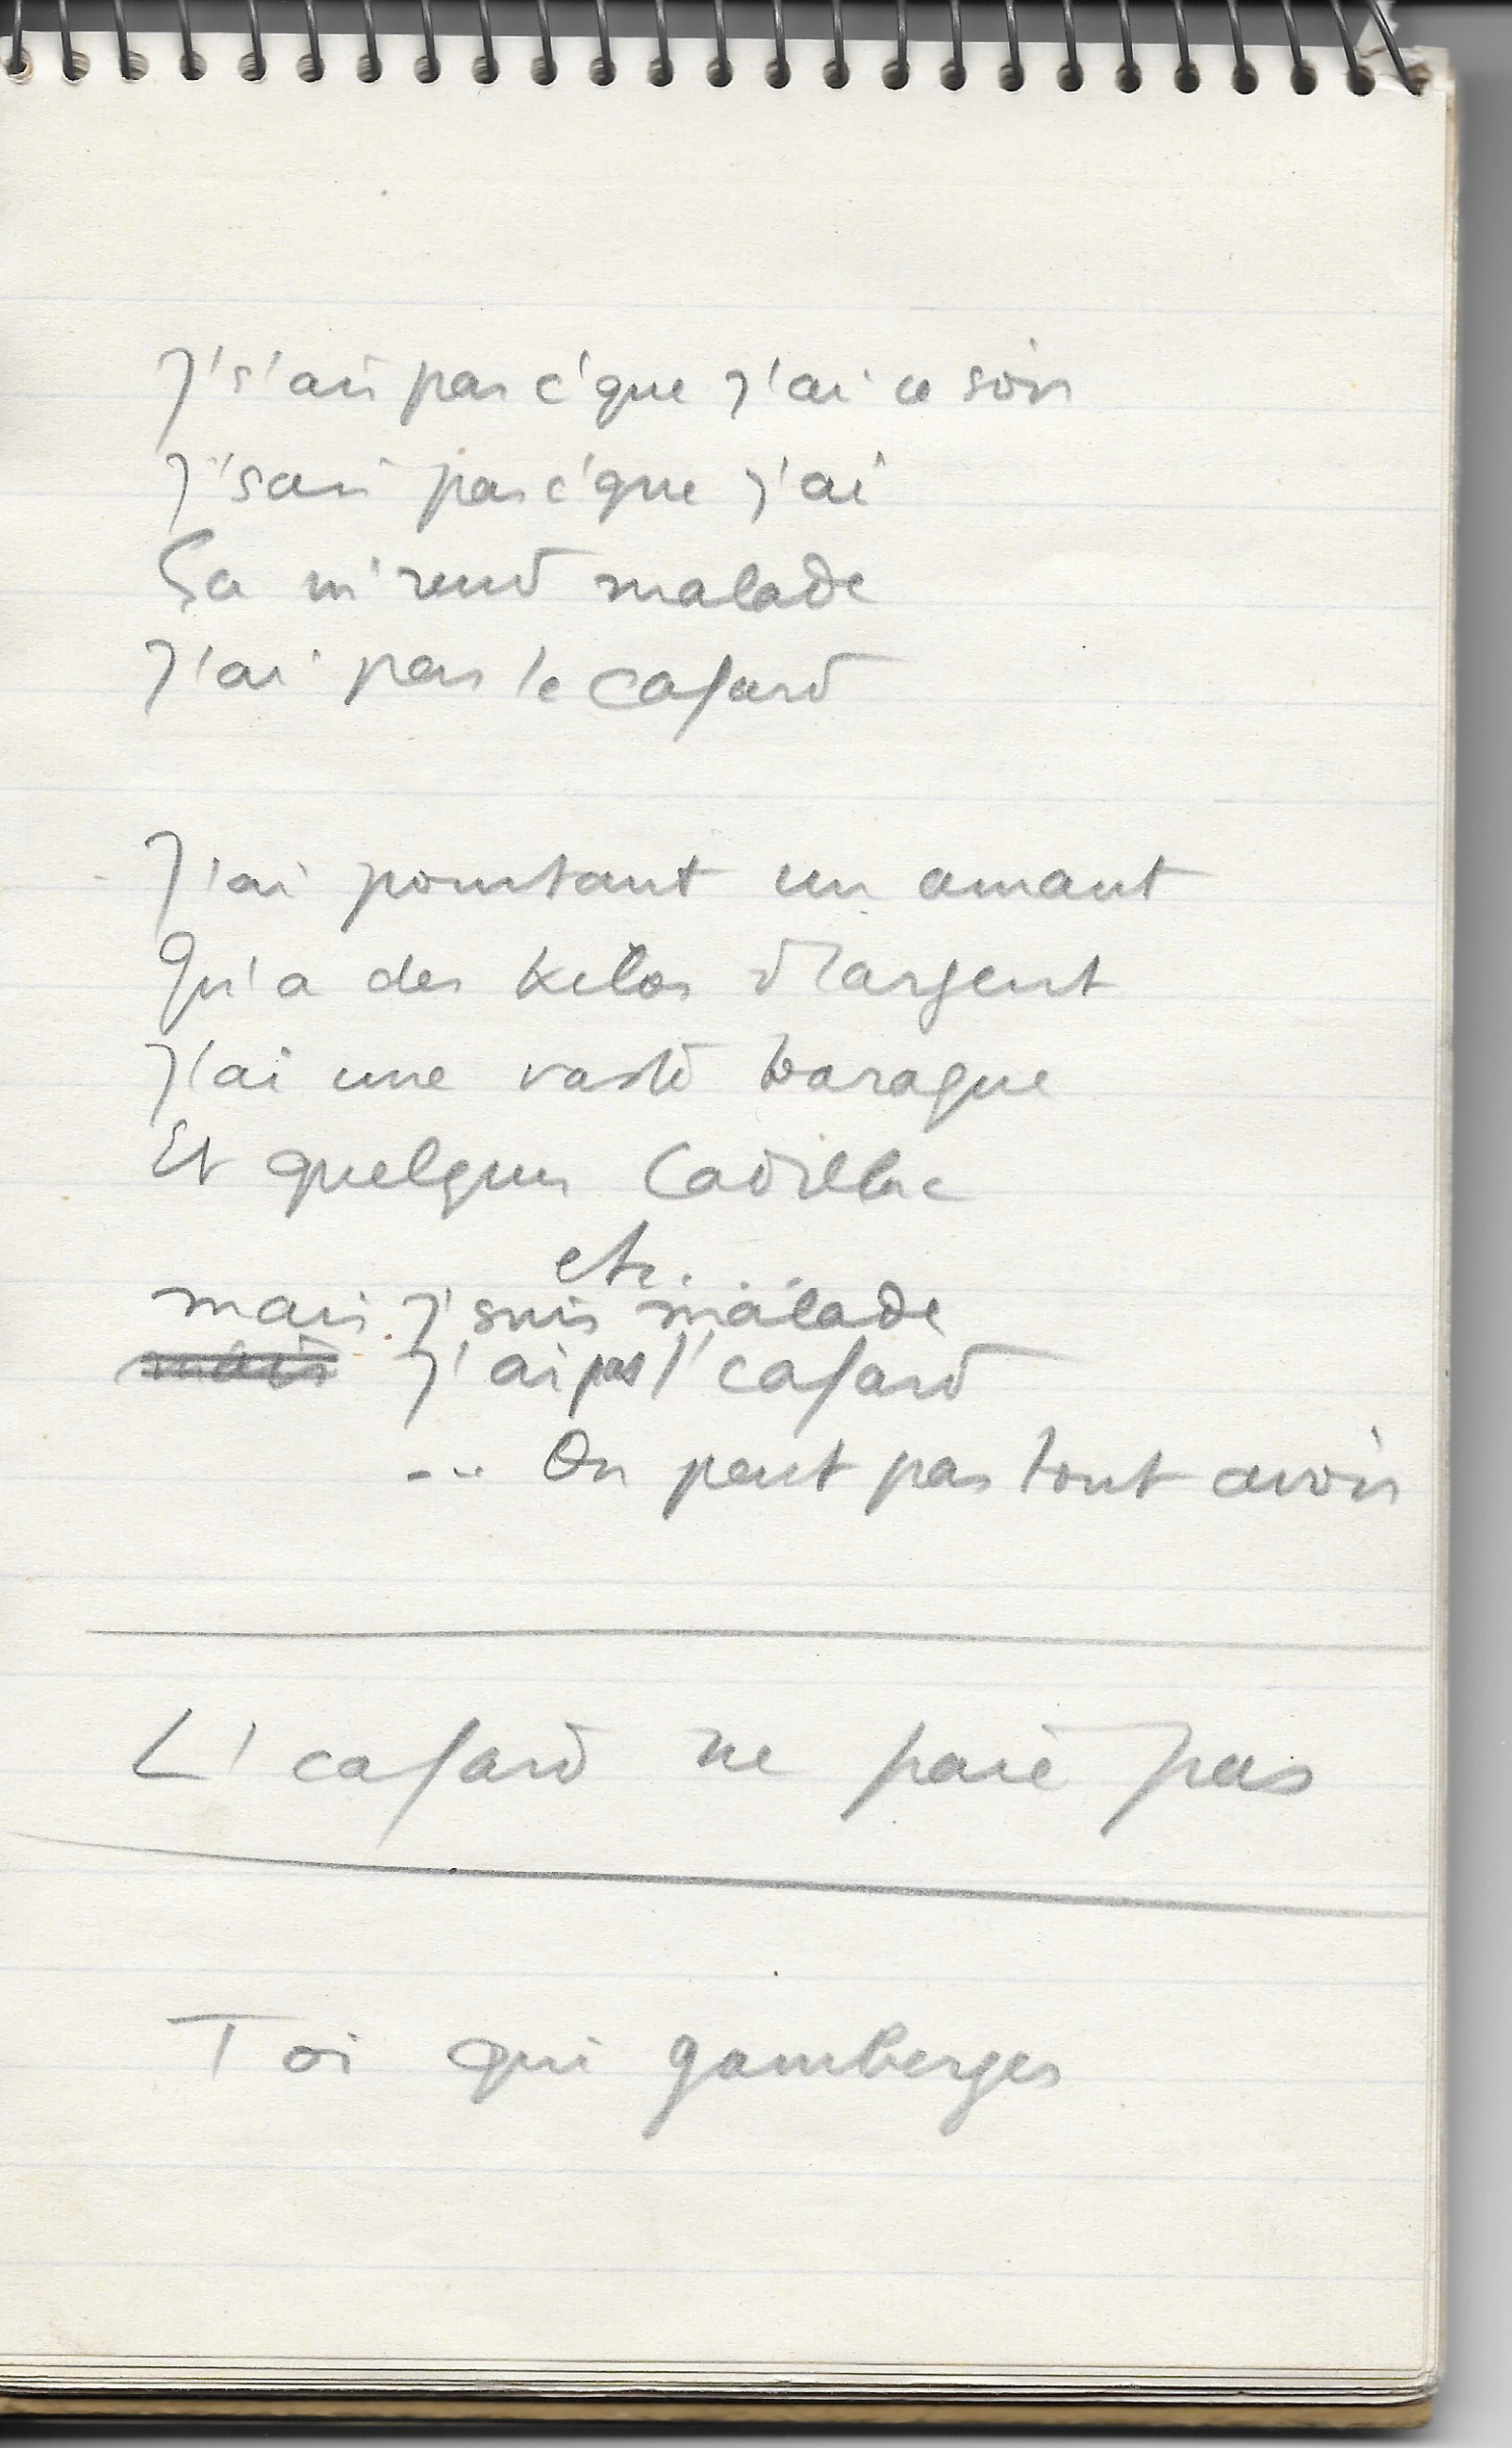 J's'ais pas c'que j'ai ce soir
J'sais pas c'que j'ai
Ça m'rend malade
J'ai pas le cafard
J'ai pourtant un amant
Qu'a des kilos d'argent
J'ai une vaste baraque
Et quelques Cadillac
etc...
mais j'suis malade
mais j'ai pas l'cafard
... On peut pas tout avoir
L'cafard ne paie pas
Toi qui gamberges